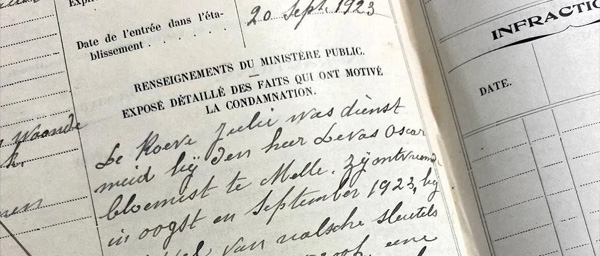 Date de l'entrée dans l'éta-
blissement . . . . . .
20 Sept. 1923
RENSEIGNEMENTS DU MINISTÈRE PUBLIC.
EXPOSÉ DÉTAILLÉ DES FAITS QUI ONT MOTIVÉ
LA CONDAMNATION.
De Koeve Julie was dienst
meid bij den heer Devas Oscar
bloemist te Melle. Zij ontvreemd
in oogst en September 1923, bij
van valsche sleutels
eene
INFRACTIO
DATE.